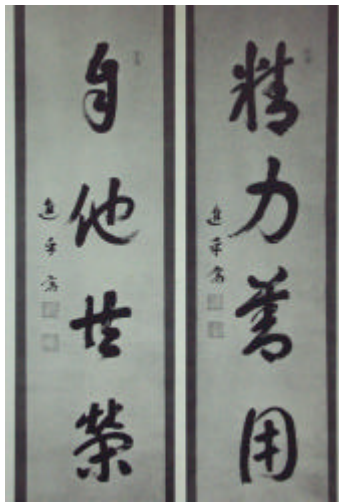 精力善用
進乎齋
自他共榮
進乎齋